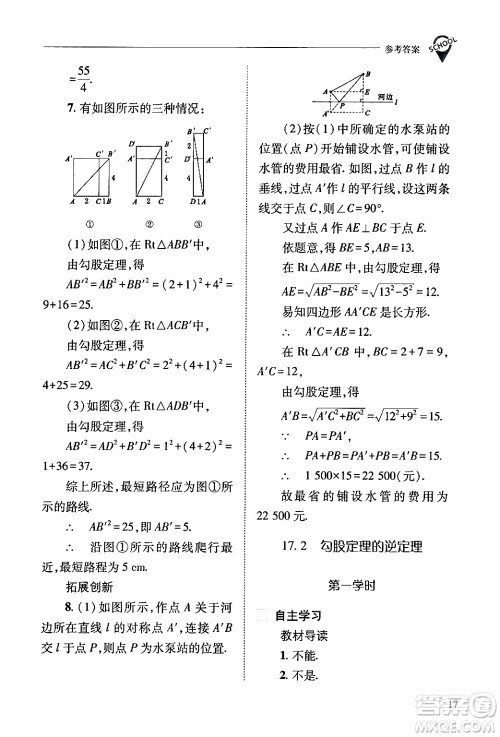 参考答案
SCHOOL
=55/4.
7. 有如图所示的三种情况:
D' B' D' B' A' C' B' 1 A' C' 1 A'
4 4 4
A 2 C B A 2 C A D B
① ② ③
(1)如图①,在 Rt△ABB′中,
由勾股定理,得
AB′²=AB²+BB′²=(2+1)²+4²=
9+16=25.
(2)如图②,在 Rt△ACB′中,
由勾股定理,得
AB′²=AC²+B′C²=2²+(4+1)²=
4+25=29.
(3)如图③,在 Rt△ADB′中,
由勾股定理,得
AB′²=AD²+B′D²=1²+(4+2)²=
1+36=37.
综上所述,最短路径应为图①所
示的路线.
∴ AB′²=25,即 AB′=5.
∴ 沿图①所示的路线爬行最
短,最短路程为 5 cm.
拓展创新
8. (1)如图所示,作点 A 关于河
边所在直线 l 的对称点 A′,连接 A′B
交 l 于点 P,则点 P 为水泵站的位置.
B
A E
河边
P l
A' C
(2)按(1)中所确定的水泵站的
位置(点 P)开始铺设水管,可使铺设
水管的费用最省. 如图,过点 B 作 l 的
垂线,过点 A′作 l 的平行线,设这两条
线交于点 C,则∠C=90°.
又过点 A 作 AE⊥BC 于点 E.
依题意,得 BE=5,AB=13.
由勾股定理,得
AE=√AB²−BE²=√13²−5²=12.
易知四边形 AA′CE 是长方形.
∴ A′C=AE=12.
在 Rt△A′CB 中,BC=2+7=9,
A′C=12,
由勾股定理,得
A′B=√A′C²+BC²=√12²+9²=15.
∵ PA=PA′.
∴ PA+PB=PA′+PB=A′B=15.
∴ 1 500×15=22 500(元).
故最省的铺设水管的费用为
22 500 元.
17.2 勾股定理的逆定理
第一学时
自主学习
教材导读
1. 不能.
2. 不是.
17